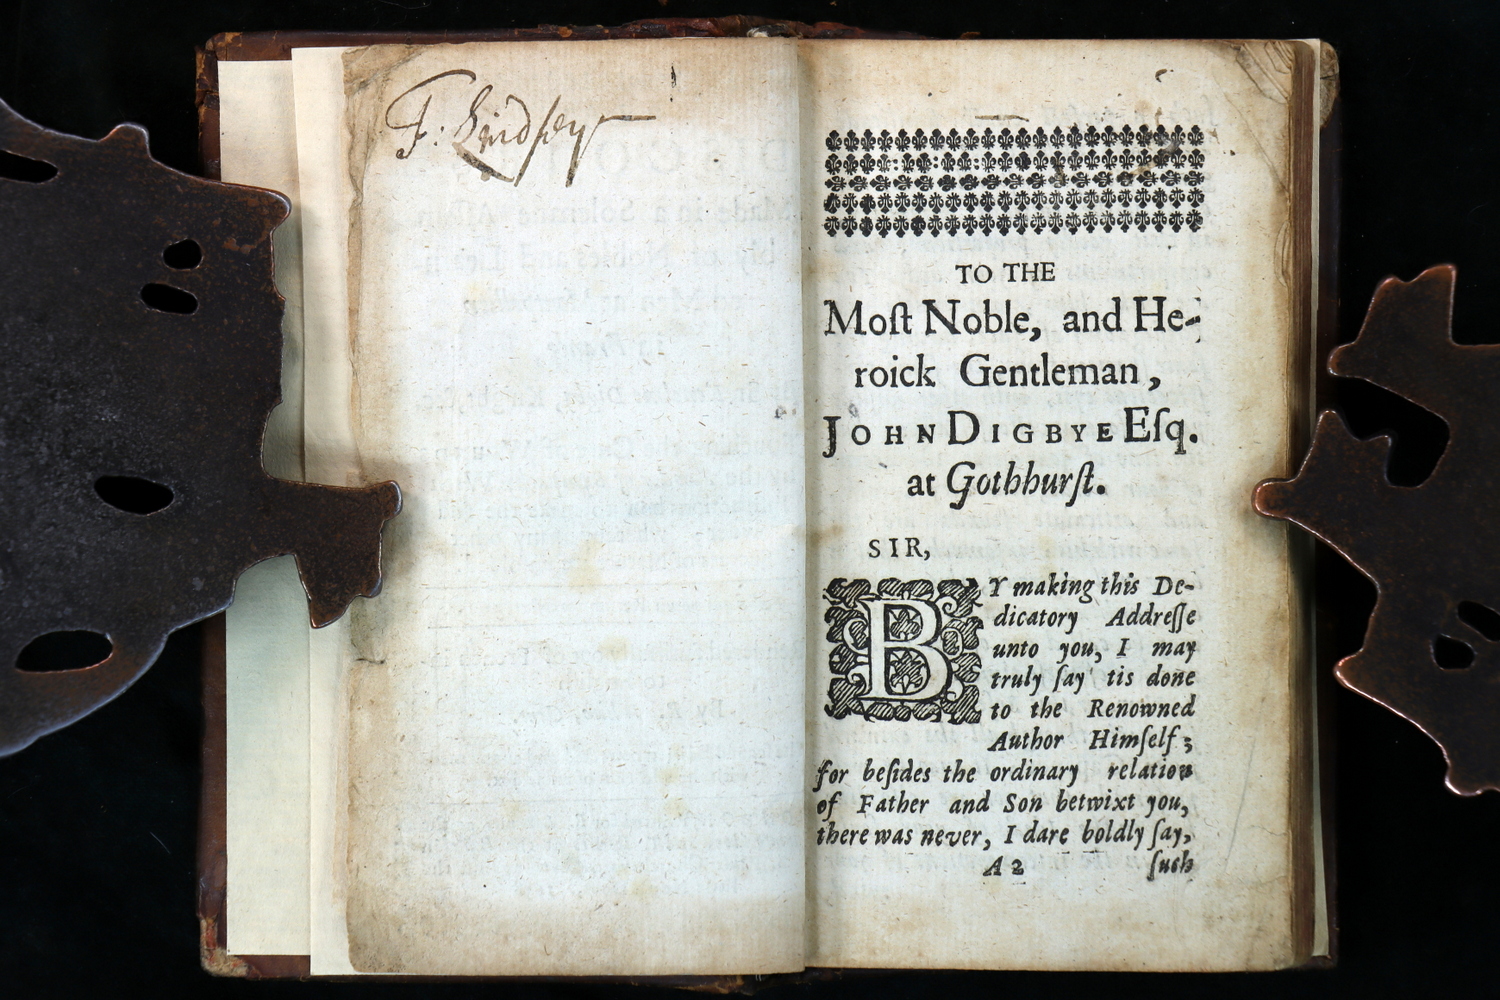 F: Lindsey
TO THE
Moſt Noble, and He-
roick Gentleman,
JOHN DIGBYE Eſq.
at Gothhurſt.
SIR,
BY making this De-
dicatory Addreſſe
unto you, I may
truly ſay tis done
to the Renowned
Author Himſelf;
for beſides the ordinary relation
of Father and Son betwixt you,
there was never, I dare boldly ſay,
A 2 ſuch